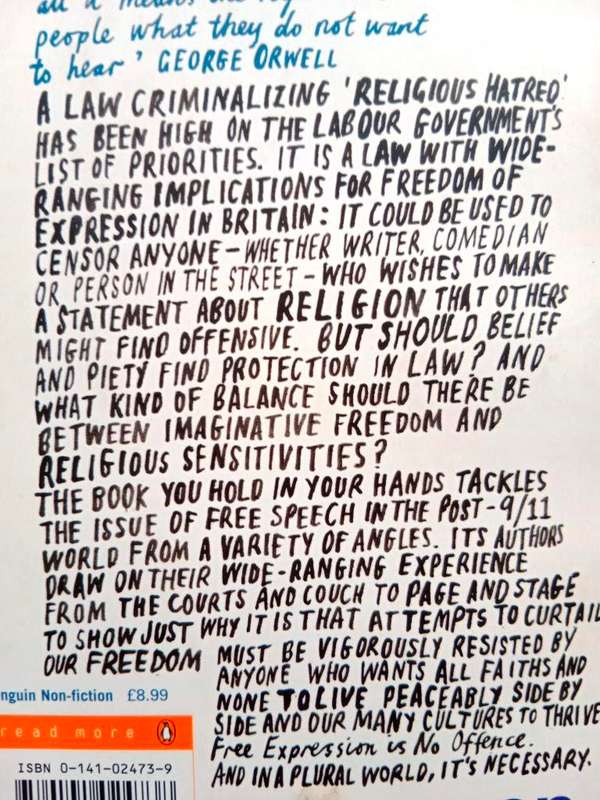 all it means the
people what they do not want
to hear' GEORGE ORWELL
A LAW CRIMINALIZING 'RELIGIOUS HATRED'
HAS BEEN HIGH ON THE LABOUR GOVERNMENT'S
LIST OF PRIORITIES. IT IS A LAW WITH WIDE-
RANGING IMPLICATIONS FOR FREEDOM OF
EXPRESSION IN BRITAIN: IT COULD BE USED TO
CENSOR ANYONE – WHETHER WRITER, COMEDIAN
OR PERSON IN THE STREET – WHO WISHES TO MAKE
A STATEMENT ABOUT RELIGION THAT OTHERS
MIGHT FIND OFFENSIVE. BUT SHOULD BELIEF
AND PIETY FIND PROTECTION IN LAW? AND
WHAT KIND OF BALANCE SHOULD THERE BE
BETWEEN IMAGINATIVE FREEDOM AND
RELIGIOUS SENSITIVITIES?
THE BOOK YOU HOLD IN YOUR HANDS TACKLES
THE ISSUE OF FREE SPEECH IN THE POST-9/11
WORLD FROM A VARIETY OF ANGLES. ITS AUTHORS
DRAW ON THEIR WIDE-RANGING EXPERIENCE
FROM THE COURTS AND COUCH TO PAGE AND STAGE
TO SHOW JUST WHY IT IS THAT ATTEMPTS TO CURTAIL
OUR FREEDOM MUST BE VIGOROUSLY RESISTED BY
ANYONE WHO WANTS ALL FAITHS AND
NONE TO LIVE PEACEABLY SIDE BY
SIDE AND OUR MANY CULTURES TO THRIVE
Free Expression is No Offence.
AND IN A PLURAL WORLD, IT'S NECESSARY.
nguin Non-fiction £8.99
read more
ISBN 0-141-02473-9